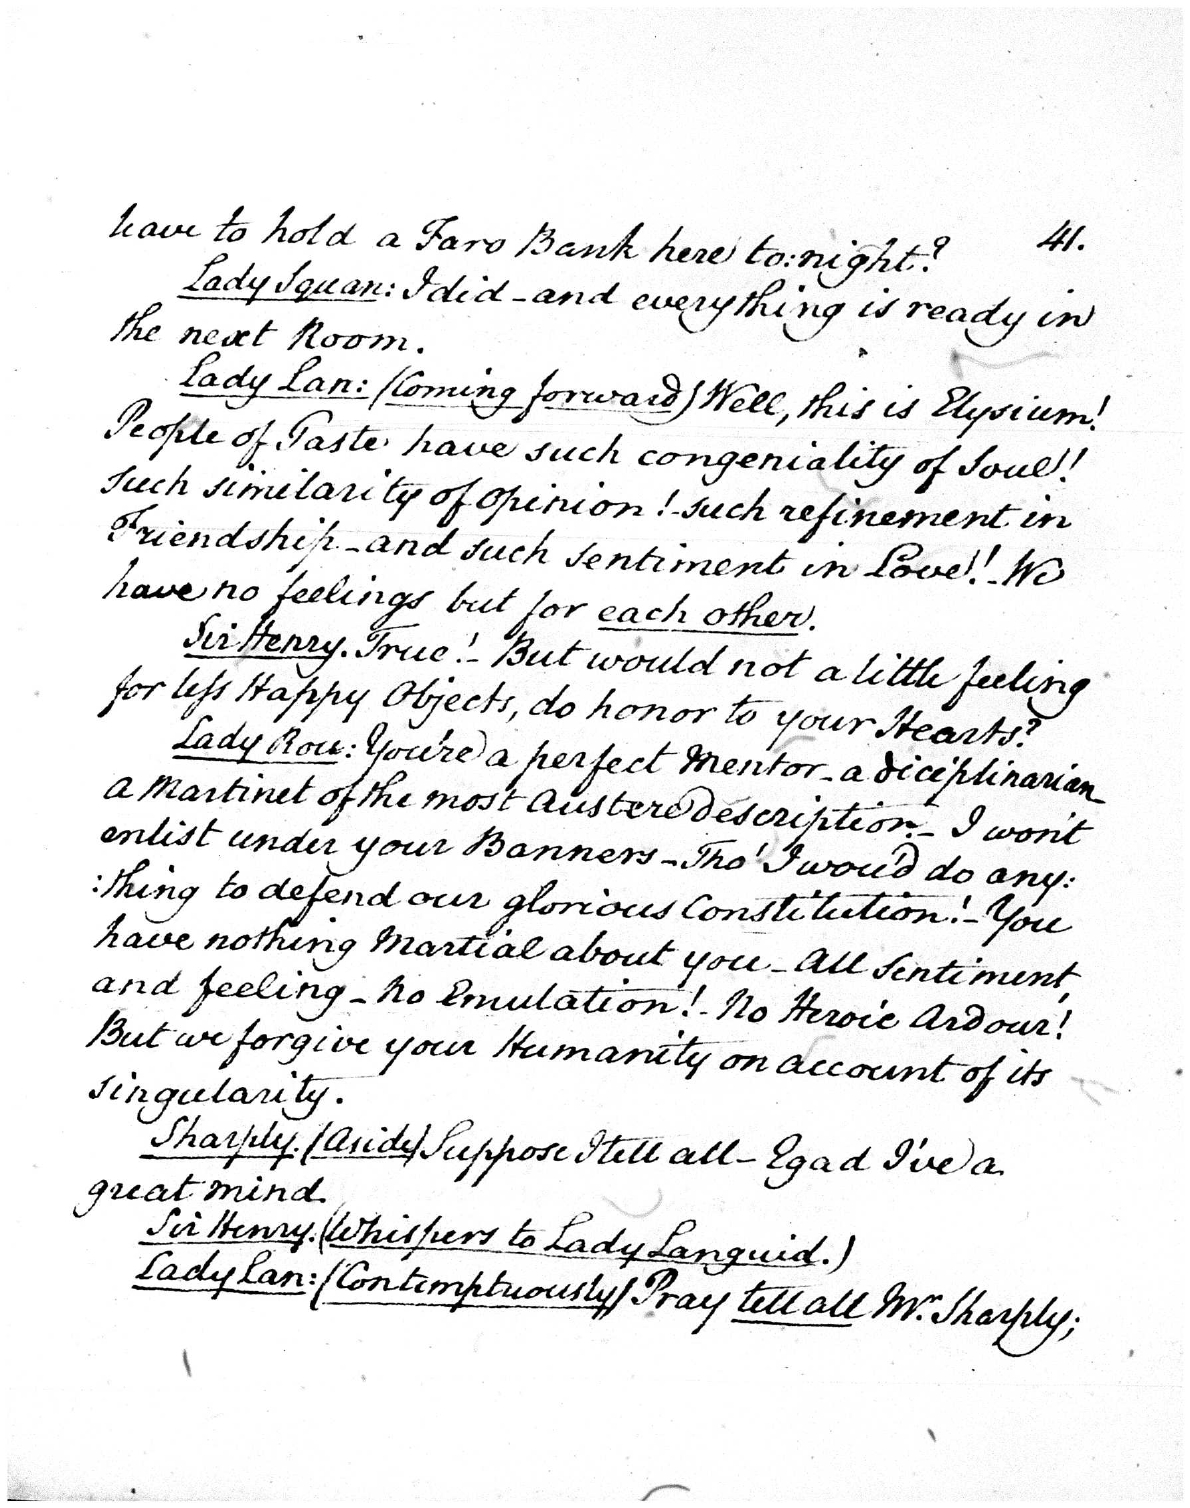 have to hold a Faro Bank here to:night? 41.
Lady Squan: I did - and everything is ready in
the next Room.
Lady Lan: (Coming forward) Well, this is Elysium!
People of Taste have such congeniality of Soul!!
such similarity of opinion! - such refinement in
Friendship - and such sentiment in Love!! - We
have no feelings but for each other.
Sir Henry. True! - But would not a little feeling
for less Happy Objects, do honor to your Hearts?
Lady Rou: You're a perfect Mentor - a diciplinarian
a Martinet of the most Austere description. - I won't
enlist under your Banners - Tho' I wou'd do any:
:thing to defend our glorious Constitution! - You
have nothing Martial about you - All Sentiment,
and feeling - No Emulation! - No Heroic Ardour!
But we forgive your Humanity on account of its
singularity.
Sharply. (Aside) Suppose I tell all - Egad I've a
great mind.
Sir Henry. (Whispers to Lady Languid.)
Lady Lan: (Contemptuously) Pray tell all Mr. Sharply;